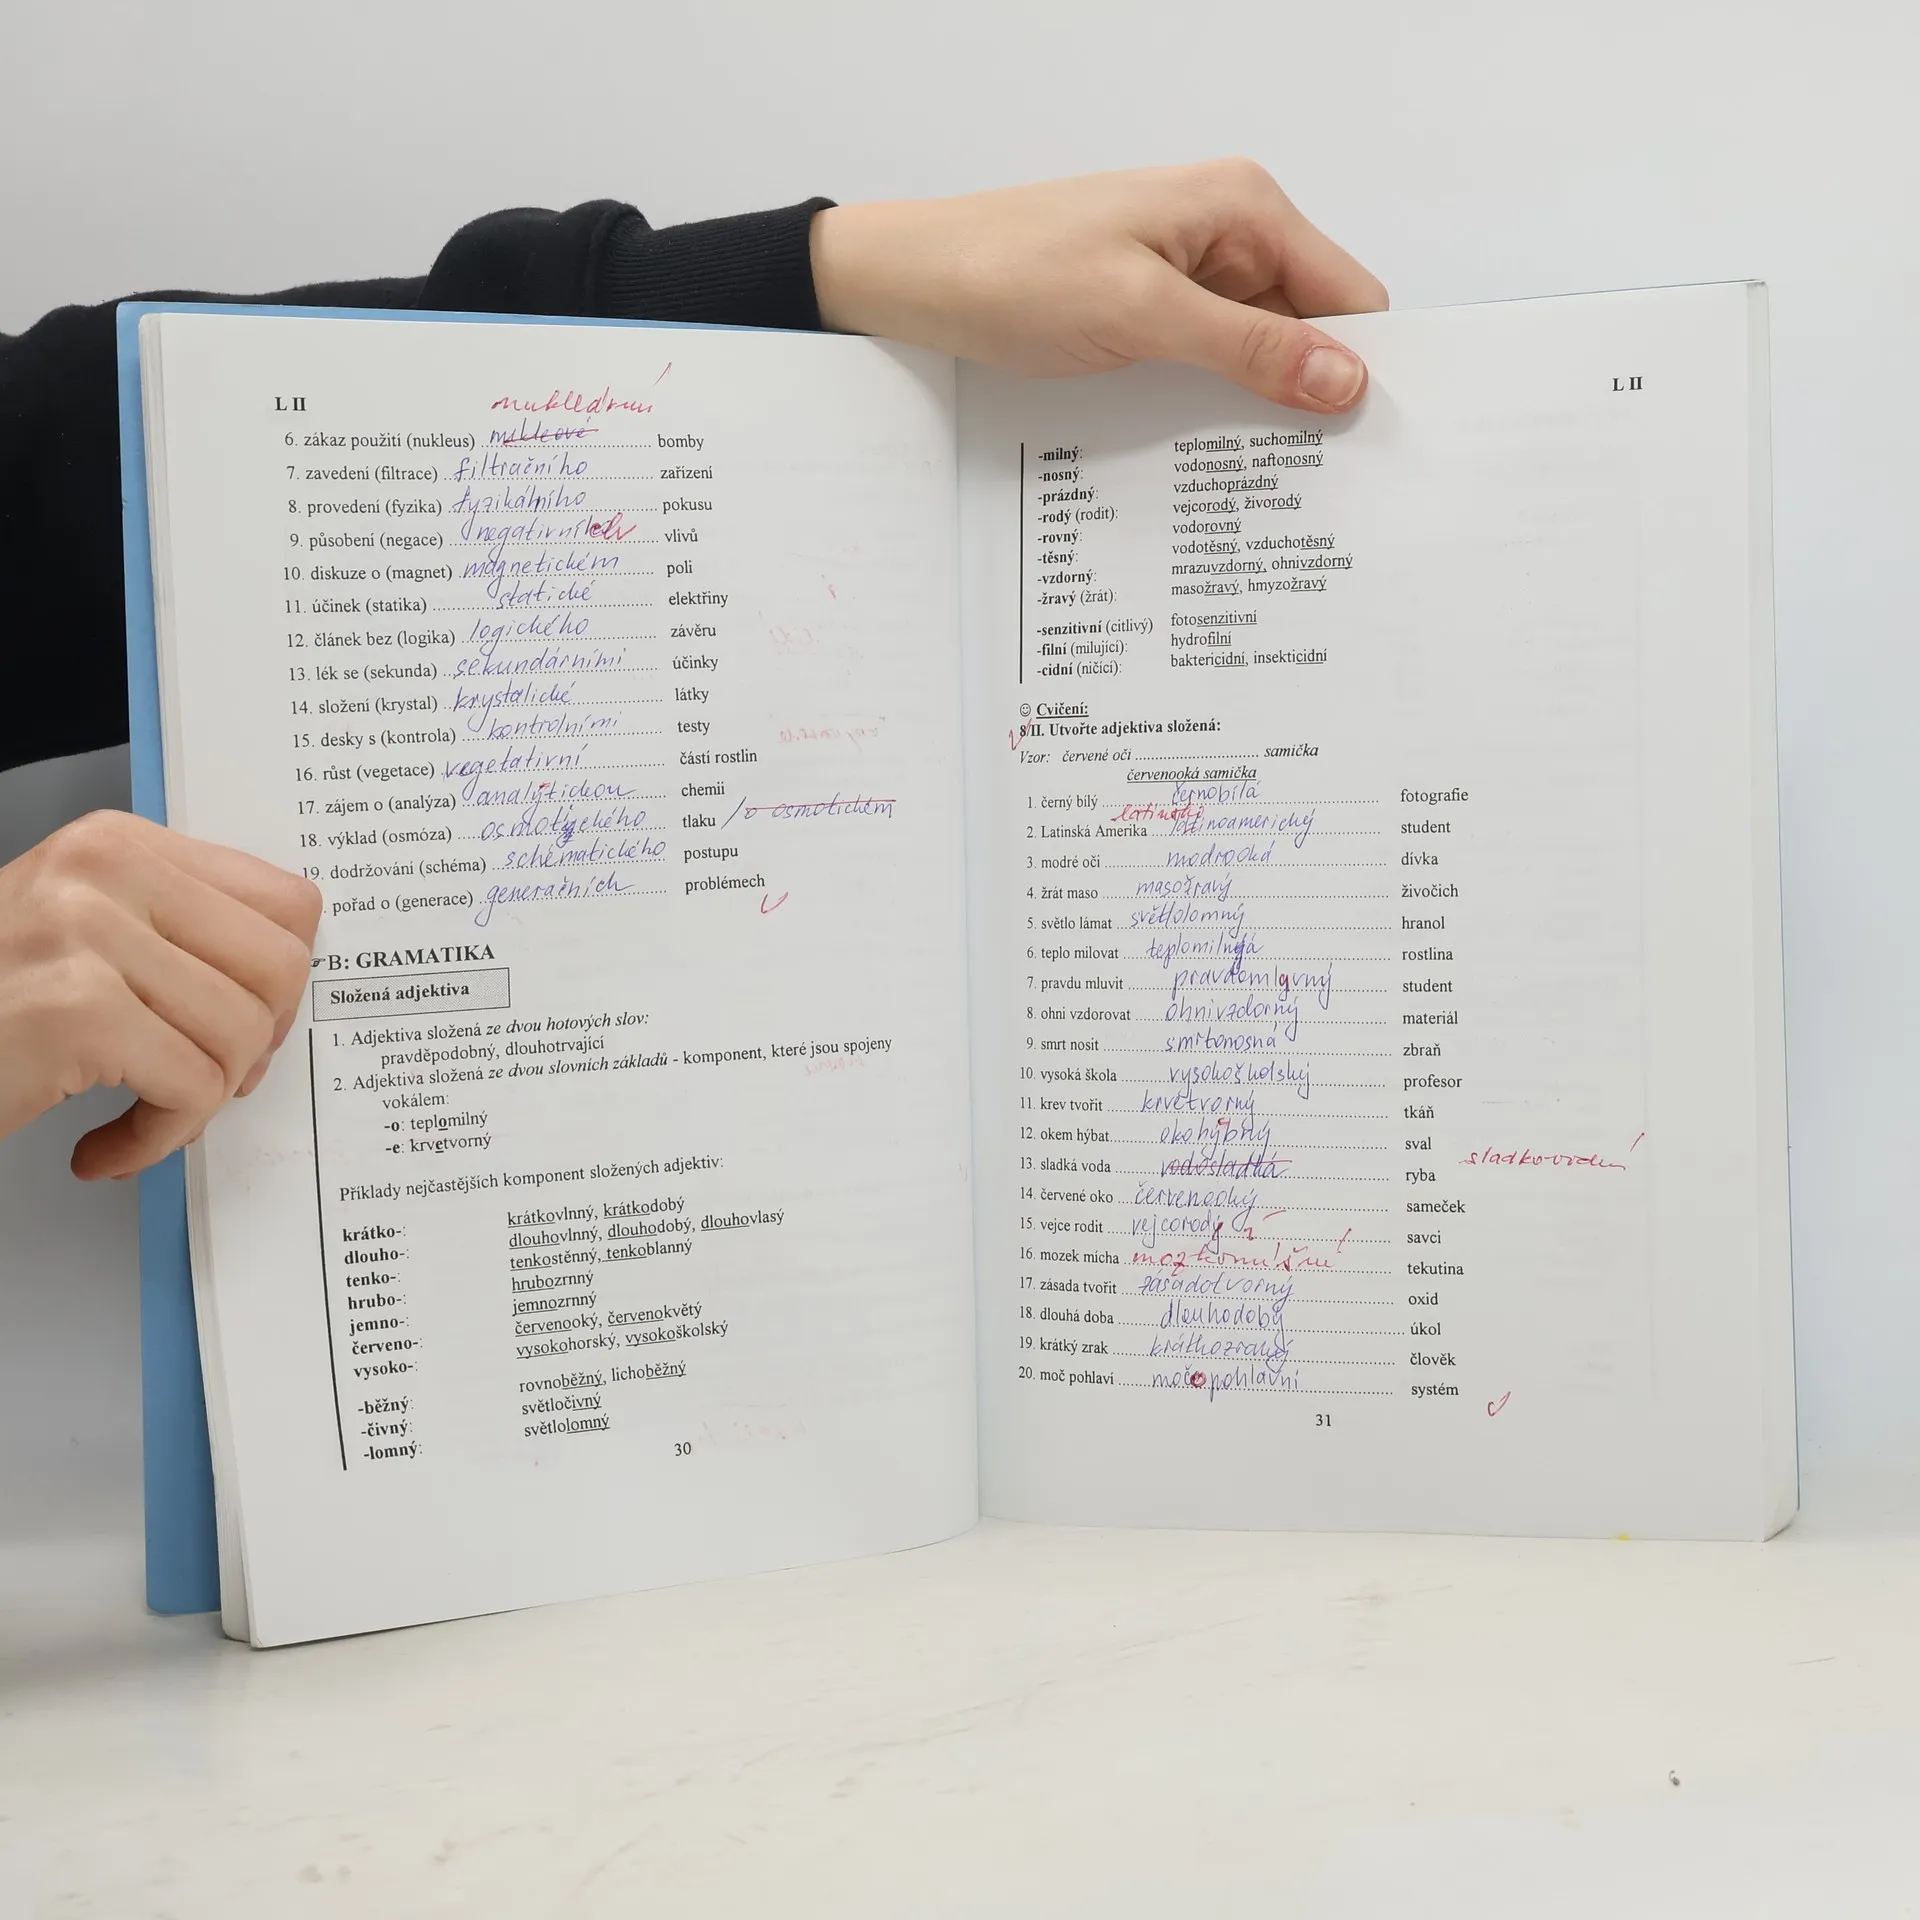 L II
nukleární
6. zákaz použití (nukleus) nukleové bomby
7. zavedení (filtrace) filtračního zařízení
8. provedení (fyzika) fyzikálního pokusu
9. působení (negace) negativních vlivů
10. diskuze o (magnet) magnetickém poli
11. účinek (statika) statické elektřiny
12. článek bez (logika) logického závěru
13. lék se (sekunda) sekundárními účinky
14. složení (krystal) krystalické látky
15. desky s (kontrola) kontrolními testy
16. růst (vegetace) vegetativní částí rostlin
17. zájem o (analýza) analytickou chemii
18. výklad (osmóza) osmotického tlaku / o osmotickém
19. dodržování (schéma) schématického postupu
. pořad o (generace) generačních problémech
☞B: GRAMATIKA
Složená adjektiva
1. Adjektiva složená ze dvou hotových slov:
pravděpodobný, dlouhotrvající
2. Adjektiva složená ze dvou slovních základů - komponent, které jsou spojeny
vokálem:
-o: teplomilný
-e: krvetvorný
Příklady nejčastějších komponent složených adjektiv:
krátko-: krátkovlnný, krátkodobý
dlouho-: dlouhovlnný, dlouhodobý, dlouhovlasý
tenko-: tenkostěnný, tenkoblanný
hrubo-: hrubozrnný
jemno-: jemnozrnný
červeno-: červenooký, červenokvětý
vysoko-: vysokohorský, vysokoškolský
-běžný: rovnoběžný, lichoběžný
-čivný: světločivný
-lomný: světlolomný
30
L II
-milný: teplomilný, suchomilný
-nosný: vodonosný, naftonosný
-prázdný: vzduchoprázdný
-rodý (rodit): vejcorodý, živorodý
-rovný: vodorovný
-těsný: vodotěsný, vzduchotěsný
-vzdorný: mrazuvzdorný, ohnivzdorný
-žravý (žrát): masožravý, hmyzožravý
-senzitivní (citlivý) fotosenzitivní
-filní (milující): hydrofilní
-cidní (ničící): baktericidní, insekticidní
☺ Cvičení:
8/II. Utvořte adjektiva složená:
Vzor: červené oči .............................. samička
červenooká samička
1. černý bílý černobílá fotografie
2. Latinská Amerika latinoamerický student
3. modré oči modrooká dívka
4. žrát maso masožravý živočich
5. světlo lámat světlolomný hranol
6. teplo milovat teplomilná rostlina
7. pravdu mluvit pravdomluvný student
8. ohni vzdorovat ohnivzdorný materiál
9. smrt nosit smrtonosná zbraň
10. vysoká škola vysokoškolský profesor
11. krev tvořit krvetvorný tkáň
12. okem hýbat okohybný sval
13. sladká voda vodosladká ryba sladkovodní
14. červené oko červenooký sameček
15. vejce rodit vejcorodý savci
16. mozek mícha mozkomíšní tekutina
17. zásada tvořit zásadotvorný oxid
18. dlouhá doba dlouhodobý úkol
19. krátký zrak krátkozraký člověk
20. moč pohlaví močopohlavní systém
31